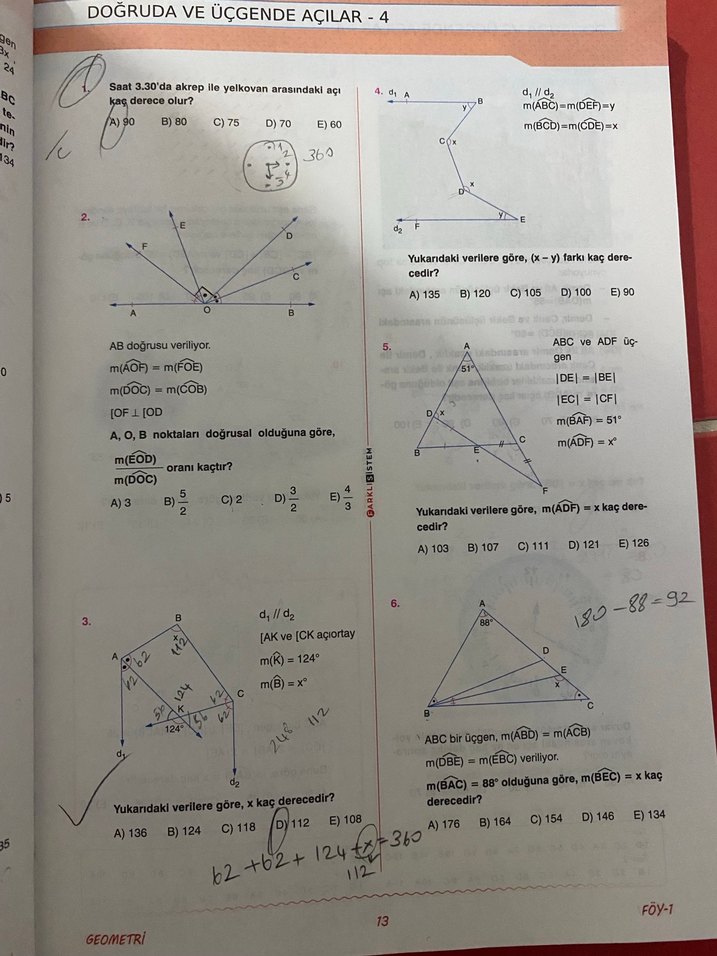 DOĞRUDA VE ÜÇGENDE AÇILAR - 4
1. Saat 3.30'da akrep ile yelkovan arasındaki açı
kaç derece olur?
A) 90 B) 80 C) 75 D) 70 E) 60
360
2.
E
F
D
C
A
O
B
AB doğrusu veriliyor.
m(AOF) = m(FOE)
m(DOC) = m(COB)
[OF ⊥ [OD
A, O, B noktaları doğrusal olduğuna göre,
m(EOD)
m(DOC)
oranı kaçtır?
A) 3 B) 5/2 C) 2 D) 3/2 E) 4/3
3.
B
x
112
A
62
62
124
K
56
56
124°
62
62
C
d₁
d₂
d₁ // d₂
[AK ve [CK açıortay
m(K) = 124°
m(B) = x°
248 112
Yukarıdaki verilere göre, x kaç derecedir?
A) 136 B) 124 C) 118 D) 112 E) 108
62 + 62 + 124 + x = 360
112
4.
d₁ A
B
y
C x
D x
y E
d₂ F
d₁ // d₂
m(ABC)=m(DEF)=y
m(BCD)=m(CDE)=x
Yukarıdaki verilere göre, (x – y) farkı kaç dere-
cedir?
A) 135 B) 120 C) 105 D) 100 E) 90
5.
A
51°
D x
B
E
C
F
ABC ve ADF üç-
gen
|DE| = |BE|
|EC| = |CF|
m(BAF) = 51°
m(ADF) = x°
Yukarıdaki verilere göre, m(ADF) = x kaç dere-
cedir?
A) 103 B) 107 C) 111 D) 121 E) 126
6.
A
88°
D
E
x
B
C
180 - 88 = 92
ABC bir üçgen, m(ABD) = m(ACB)
m(DBE) = m(EBC) veriliyor.
m(BAC) = 88° olduğuna göre, m(BEC) = x kaç
derecedir?
A) 176 B) 164 C) 154 D) 146 E) 134
FARKLI SİSTEM
GEOMETRİ
13
FÖY-1